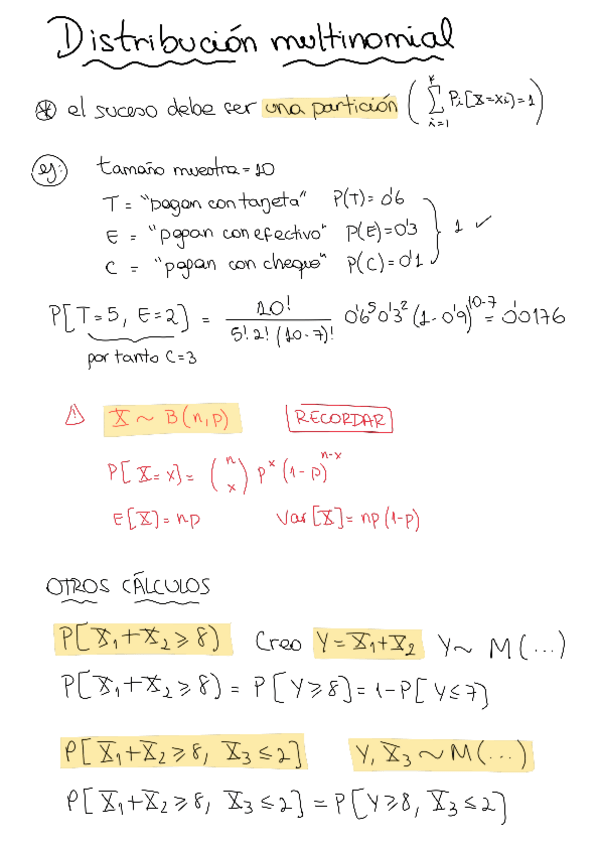 Distribución multinomial
⊛ el suceso debe ser una partición ( ∑_{i=1}^{k} Pi[X=xi)=1 )
ej: tamaño muestra = 10
T = "pagan con tarjeta" P(T)= 0'6
E = "pagan con efectivo" P(E)=0'3 } 1 ✓
C = "pagan con cheque" P(C)=0'1
P[T=5, E=2] = 10! / 5! 2! (10-7)! 0'6^5 0'3^2 (1-0'9)^{10-7} = 0'0176
por tanto C=3
⚠ X ~ B(n,p) RECORDAR
P[X=x] = (n x) p^x (1-p)^{n-x}
E[X]=np Var[X]= np(1-p)
OTROS CÁLCULOS
P[X₁+X₂⩾8) Creo Y=X₁+X₂ Y~ M(...)
P[X₁+X₂⩾8) = P[Y⩾8]= 1-P[Y≤7]
P[X₁+X₂⩾8, X₃≤2] Y, X₃ ~ M(...)
P[X₁+X₂⩾8, X₃≤2] = P[Y⩾8, X₃≤2]